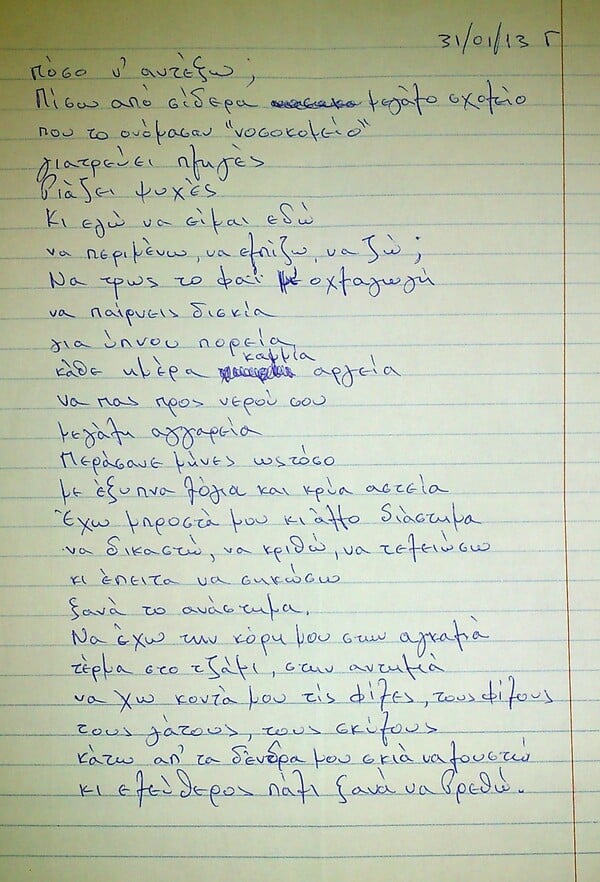 31/01/13 Γ
πόσο ν' αντέξω;
Πίσω από σίδερα μεγάλο σχολείο
που το ονόμασαν "νοσοκομείο"
γιατρεύει πληγές
βιάζει ψυχές
κι εγώ να είμαι εδώ
να περιμένω, να ελπίζω, να ζώ;
Να τρως το φαΐ με οχλαγωγή
να παίρνεις δισκία
για ύπνου πορεία
κάθε ημέρα καμμία αργεία
να πας προς νερού σου
μεγάλη αγγαρεία
Περάσανε μήνες ωστόσο
με έξυπνα λόγια και κρύα αστεία
Έχω μπροστά μου κι άλλο διάστημα
να δικαστώ, να κριθώ, να τελειώσω
κι έπειτα να σηκώσω
ξανά το ανάστημα.
Να έχω την κόρη μου στην αγκαλιά
τέρμα στο τζάμι, στην αντηλιά
να χω κοντά μου τις φίλες, τους φίλους
τους γάτους, τους σκύλους
κάτω απ' τα δένδρα μου σκιά να λουστώ
κι ελεύθερος πάλι ξανά να βρεθώ.